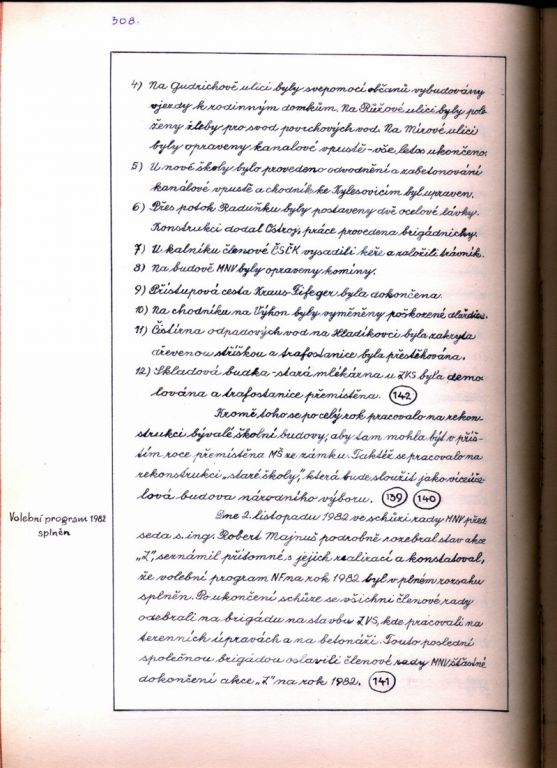 308.
4) Na Gudrichově ulici byly svepomocí občanů vybudovány
vjezdy k rodinným domkům. Na Růžové ulici byly polo-
ženy žleby pro svod povrchových vod. Na Mírové ulici
byly opraveny kanálové vpustě - vše letos ukončeno.
5) U nové školy bylo provedeno odvodnění a zabetonování
kanálové vpustě a chodník ke Kylešovicím byl upraven.
6) Přes potok Raduňku byly postaveny dvě ocelové lávky.
Konstrukci dodal Ostroj, práce provedena brigádnicky.
7) U kalníku členové ČSČK vysadili keře a založili trávník.
8) Na budově MNV byly opraveny komíny.
9) Přístupová cesta Kraus-Fifeger byla dokončena.
10) Na chodníku na Výhon byly vyměněny poškozené dlaždice.
11) Čistírna odpadových vod na Hladíkovci byla zakryta
dřevenou stříškou a trafostanice byla přestěhována.
12) Skladová budka - stará mlékárna u ZVS byla demo-
lována a trafostanice přemístěna. 142
Kromě toho se po celý rok pracovalo na rekon-
strukci bývalé školní budovy, aby tam mohla být v příš-
tím roce přemístěna MŠ ze zámku. Taktéž se pracovalo na
rekonstrukci „staré školy", která bude sloužit jako víceúče-
lová budova národního výboru. 139 140
Volební program 1982
splněn
Dne 2. listopadu 1982 ve schůzi rady MNV před-
seda s. ing. Robert Majnuš podrobně rozebral stav akce
„Z", seznámil přítomné s jejich realizací a konstatoval,
že volební program NF na rok 1982 byl v plném rozsahu
splněn. Po ukončení schůze se všichni členové rady
odebrali na brigádu na stavbu ZVS, kde pracovali na
terenních úpravách a na betonáži. Touto poslední
společnou brigádou oslavili členové rady MNV šťastné
dokončení akce „Z" na rok 1982. 141